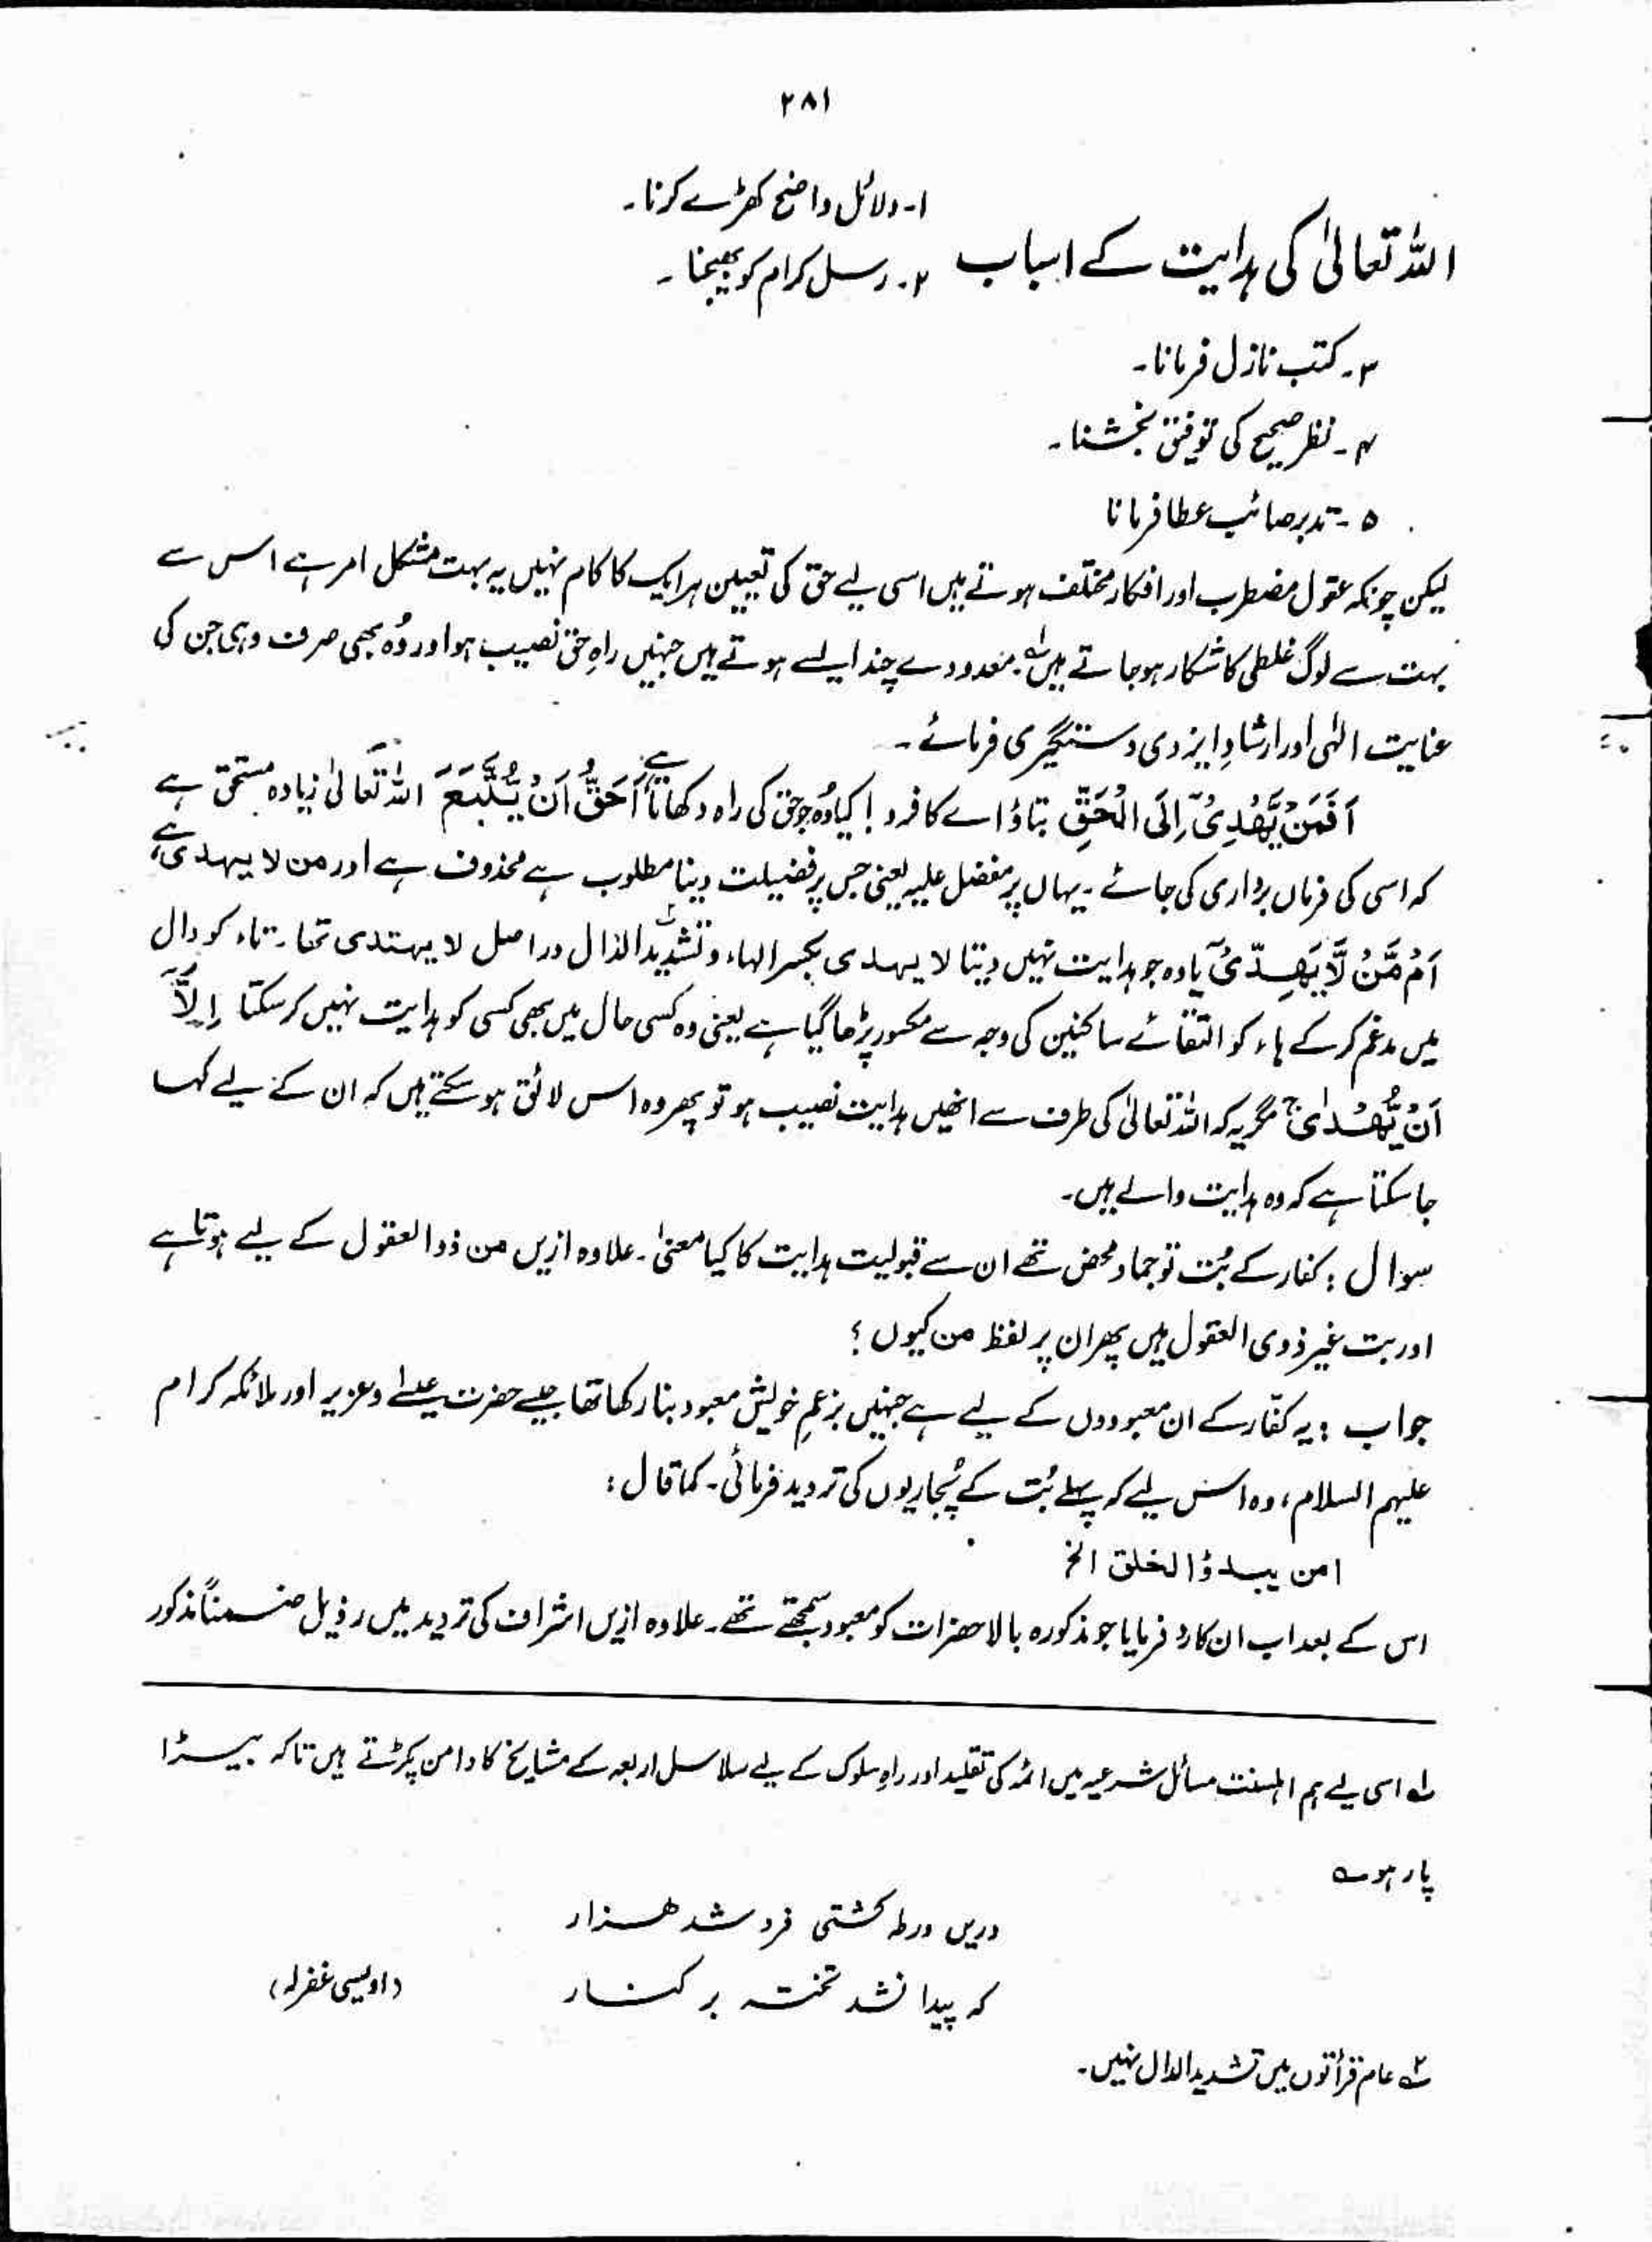 ۲۸۱
۱- دلائل واضح کھڑے کرنا۔
اللہ تعالیٰ کی ہدایت کے اسباب ۲۔ رسل کرام کو بھیجنا۔
۳۔ کتب نازل فرمانا۔
۴۔ نظر صحیح کی توفیق بخشنا۔
۵۔ تدبر صائب عطا فرمانا
لیکن چونکہ عقول مضطرب اور افکار مختلف ہوتے ہیں اسی لیے حق کی تعیین ہر ایک کا کام نہیں یہ بہت مشکل امر ہے اس سے
بہت سے لوگ غلطی کا شکار ہو جاتے ہیں۱؎۔ معدودے چند ایسے ہوتے ہیں جنہیں راہِ حق نصیب ہوا اور وُہ بھی صرف وہی جن کی
عنایت الٰہی اور ارشادِ ایزدی دستگیری فرمائے۔
اَفَمَنْ یَّھْدِیْٓ اِلَی الْحَقِّ بتاؤ اے کافرو! کیا وُہ جو حق کی راہ دکھاتا ہے اَحَقُّ اَنْ یُّتَّبَعَ اللہ تعالیٰ زیادہ مستحق ہے
کہ اسی کی فرماں برداری کی جائے۔ یہاں پر مفضل علیہ یعنی جس پر فضیلت دینا مطلوب ہے محذوف ہے اور من لا یہدی ہے،
اَمْ مَّنْ لَّا یَھِدِّیْٓ یا وہ جو ہدایت نہیں دیتا لا یہدی بکسر الہاء و تشدید۲؎ الذال دراصل لا یہتدی تھا۔ تاء کو دال
میں مدغم کر کے ہاء کو التقائے ساکنین کی وجہ سے مکسور پڑھا گیا ہے یعنی وہ کسی حال میں بھی کسی کو ہدایت نہیں کر سکتا اِلَّآ
اَنْ یُّھْدٰیج مگر یہ کہ اللہ تعالیٰ کی طرف سے انھیں ہدایت نصیب ہو تو پھر وہ اس لائق ہو سکتے ہیں کہ ان کے لیے کہا
جا سکتا ہے کہ وہ ہدایت والے ہیں۔
سوال : کفار کے بُت تو جمادِ محض تھے ان سے قبولیت ہدایت کا کیا معنیٰ۔ علاوہ ازیں من ذوالعقول کے لیے ہوتا ہے
اور بت غیر ذوی العقول ہیں پھر ان پر لفظ من کیوں؟
جواب : یہ کفّار کے ان معبودوں کے لیے ہے جنہیں بزعمِ خویش معبود بنا رکھا تھا جیسے حضرت عیسٰے و عزیر اور ملائکہ کرام
علیہم السلام، وہ اس لیے کہ پہلے بُت کے پُجاریوں کی تردید فرمائی۔ کما قال :
امن یبدؤا الخلق الخ
اس کے بعد اب ان کا رد فرمایا جو مذکورہ بالا حضرات کو معبود سمجھتے تھے۔ علاوہ ازیں اشراف کی تردید میں رذیل ضمناً مذکور
۱؎ اسی لیے ہم اہلسنت مسائل شرعیہ میں ائمہ کی تقلید اور راہِ سلوک کے لیے سلاسل اربعہ کے مشایخ کا دامن پکڑتے ہیں تاکہ بیڑا
پار ہو ؎
دریں ورطہ کشتی فرو شد ھزار
کہ پیدا نشد تختہ بر کنار (اویسی غفرلہ)
۲؎ عام قرأتوں میں تشدید الدال نہیں۔